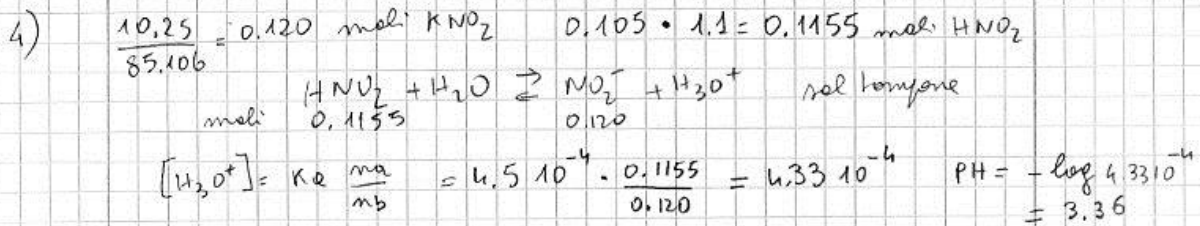 4) 10.25 / 85.106 = 0.120 moli KNO₂ 0.105 • 1.1 = 0.1155 moli HNO₂
HNO₂ + H₂O ⇄ NO₂⁻ + H₃O⁺ sol tampone
moli 0.1155 0.120
[H₃O⁺] = Ka na/nb = 4.5 10⁻⁴ • 0.1155/0.120 = 4.33 10⁻⁴ PH = -log 4.33 10⁻⁴
= 3.36